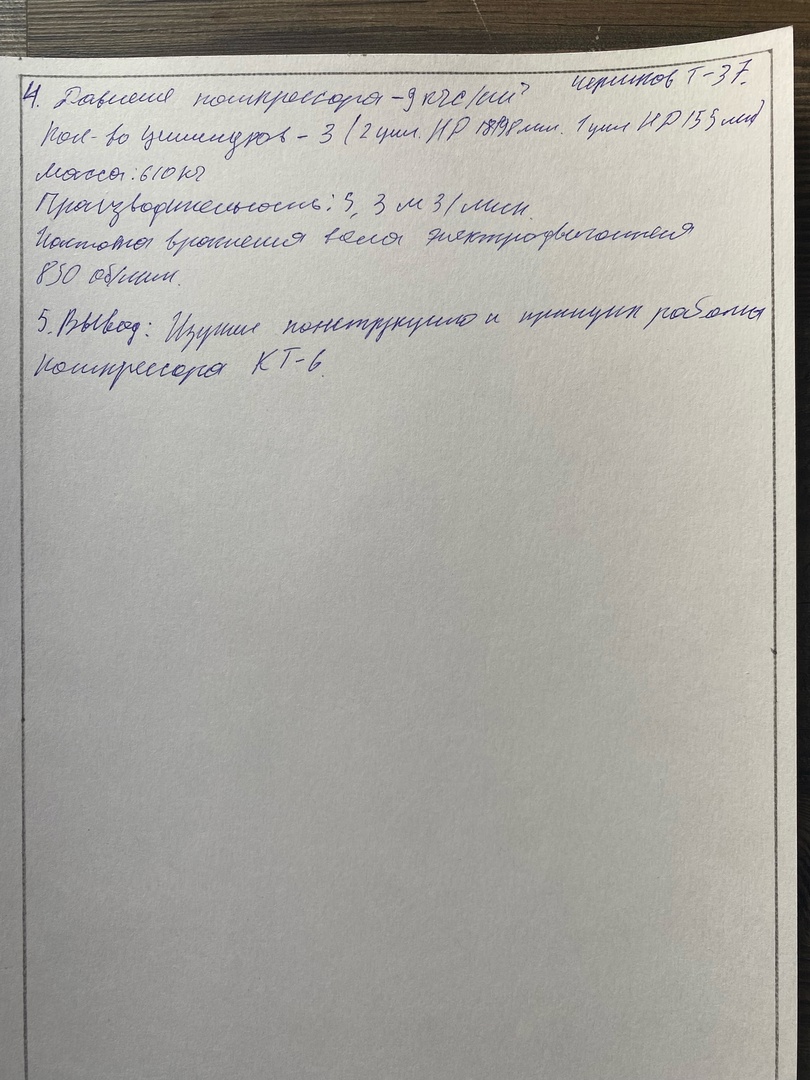 4. Давление компрессора - 9 кгс/см² Т-37.
Кол-во цилиндров - 3 (2 цил. НР 198 мм. 1 цил НР 155 мм)
Масса: 610 кг
Производительность: 5,3 м3/мин.
Частота вращения вала электродвигателя
850 об/мин.
5. Вывод: Изучил конструкцию и принцип работы
компрессора КТ-6.